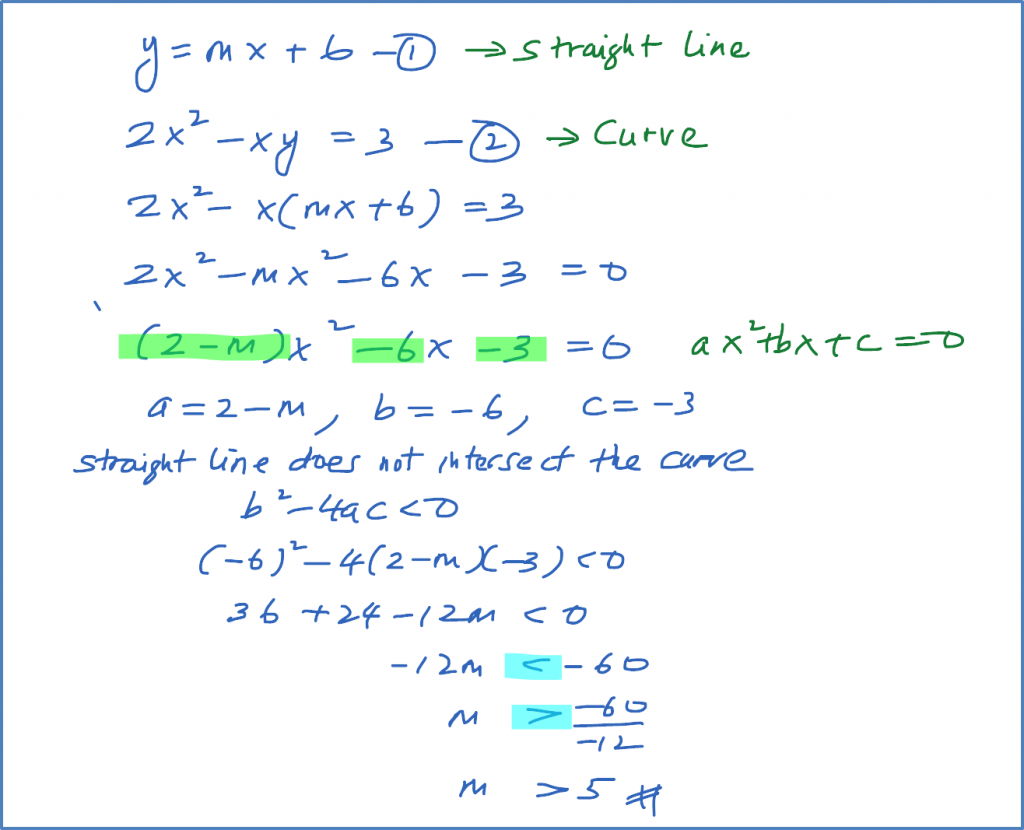 y = mx + 6 — ① → straight line
2x² - xy = 3 — ② → Curve
2x² - x(mx + 6) = 3
2x² - mx² - 6x - 3 = 0
(2 - m)x² - 6x - 3 = 0 ax² + bx + c = 0
a = 2 - m, b = -6, c = -3
straight line does not intersect the curve
b² - 4ac < 0
(-6)² - 4(2 - m)(-3) < 0
36 + 24 - 12m < 0
-12m < -60
m > -60/-12
m > 5 #